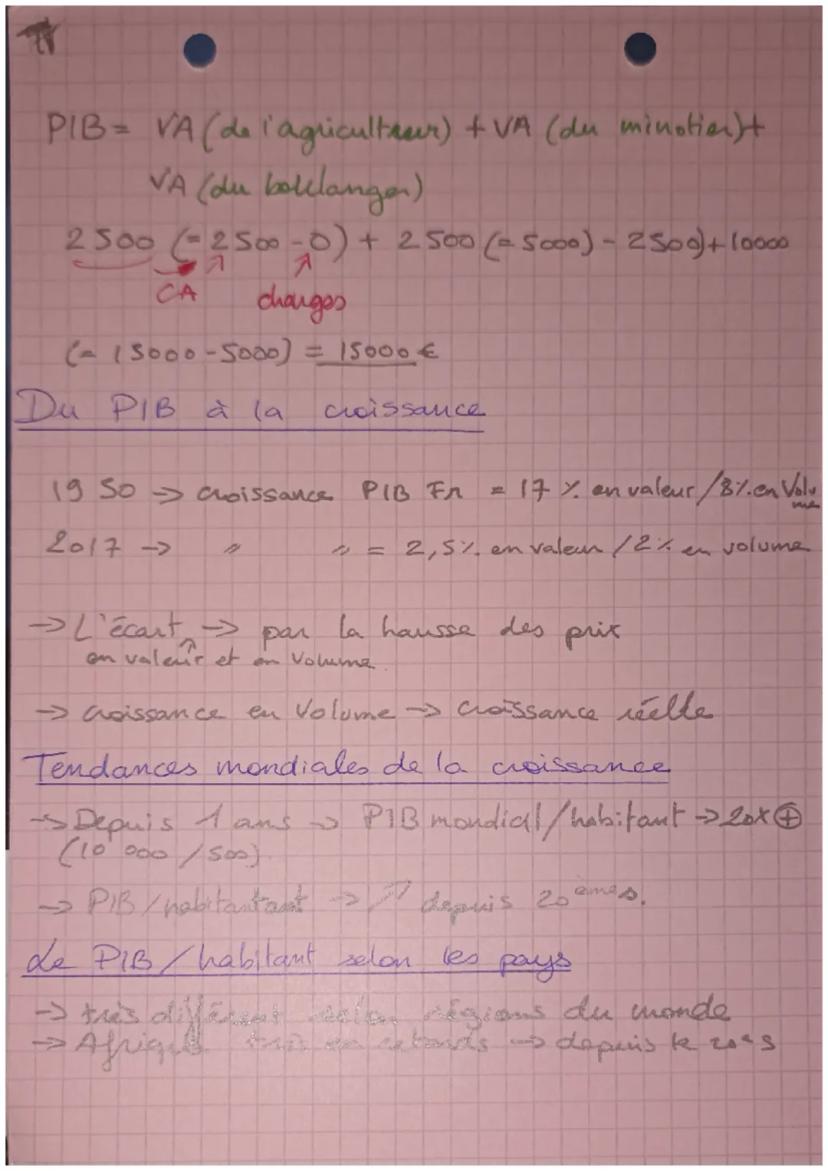 PIB = VA (de l'agriculteur) + VA (du minotier) +
VA (du boulanger)
2500 (= 2500 - 0) + 2500 (= 5000) - 2500) + 10000
CA charges
(= 15000 - 5000) = 15000 €
Du PIB à la croissance
1950 -> croissance PIB Fr = 17 % en valeur / 8% en Volume
2017 -> " " = 2,5% en valeur / 2% en volume
-> L'écart -> par la hausse des prix
en valeur et en volume
-> croissance en Volume -> croissance réelle
Tendances mondiales de la croissance
-> Depuis 1 ans -> PIB mondial/habitant -> 20x ⊕
(10 000 / 500)
-> PIB/habitantant -> ↗ depuis 20èmes.
Le PIB/habitant selon les pays
-> très différent selon régions du monde
-> Afrique très en retards -> depuis le